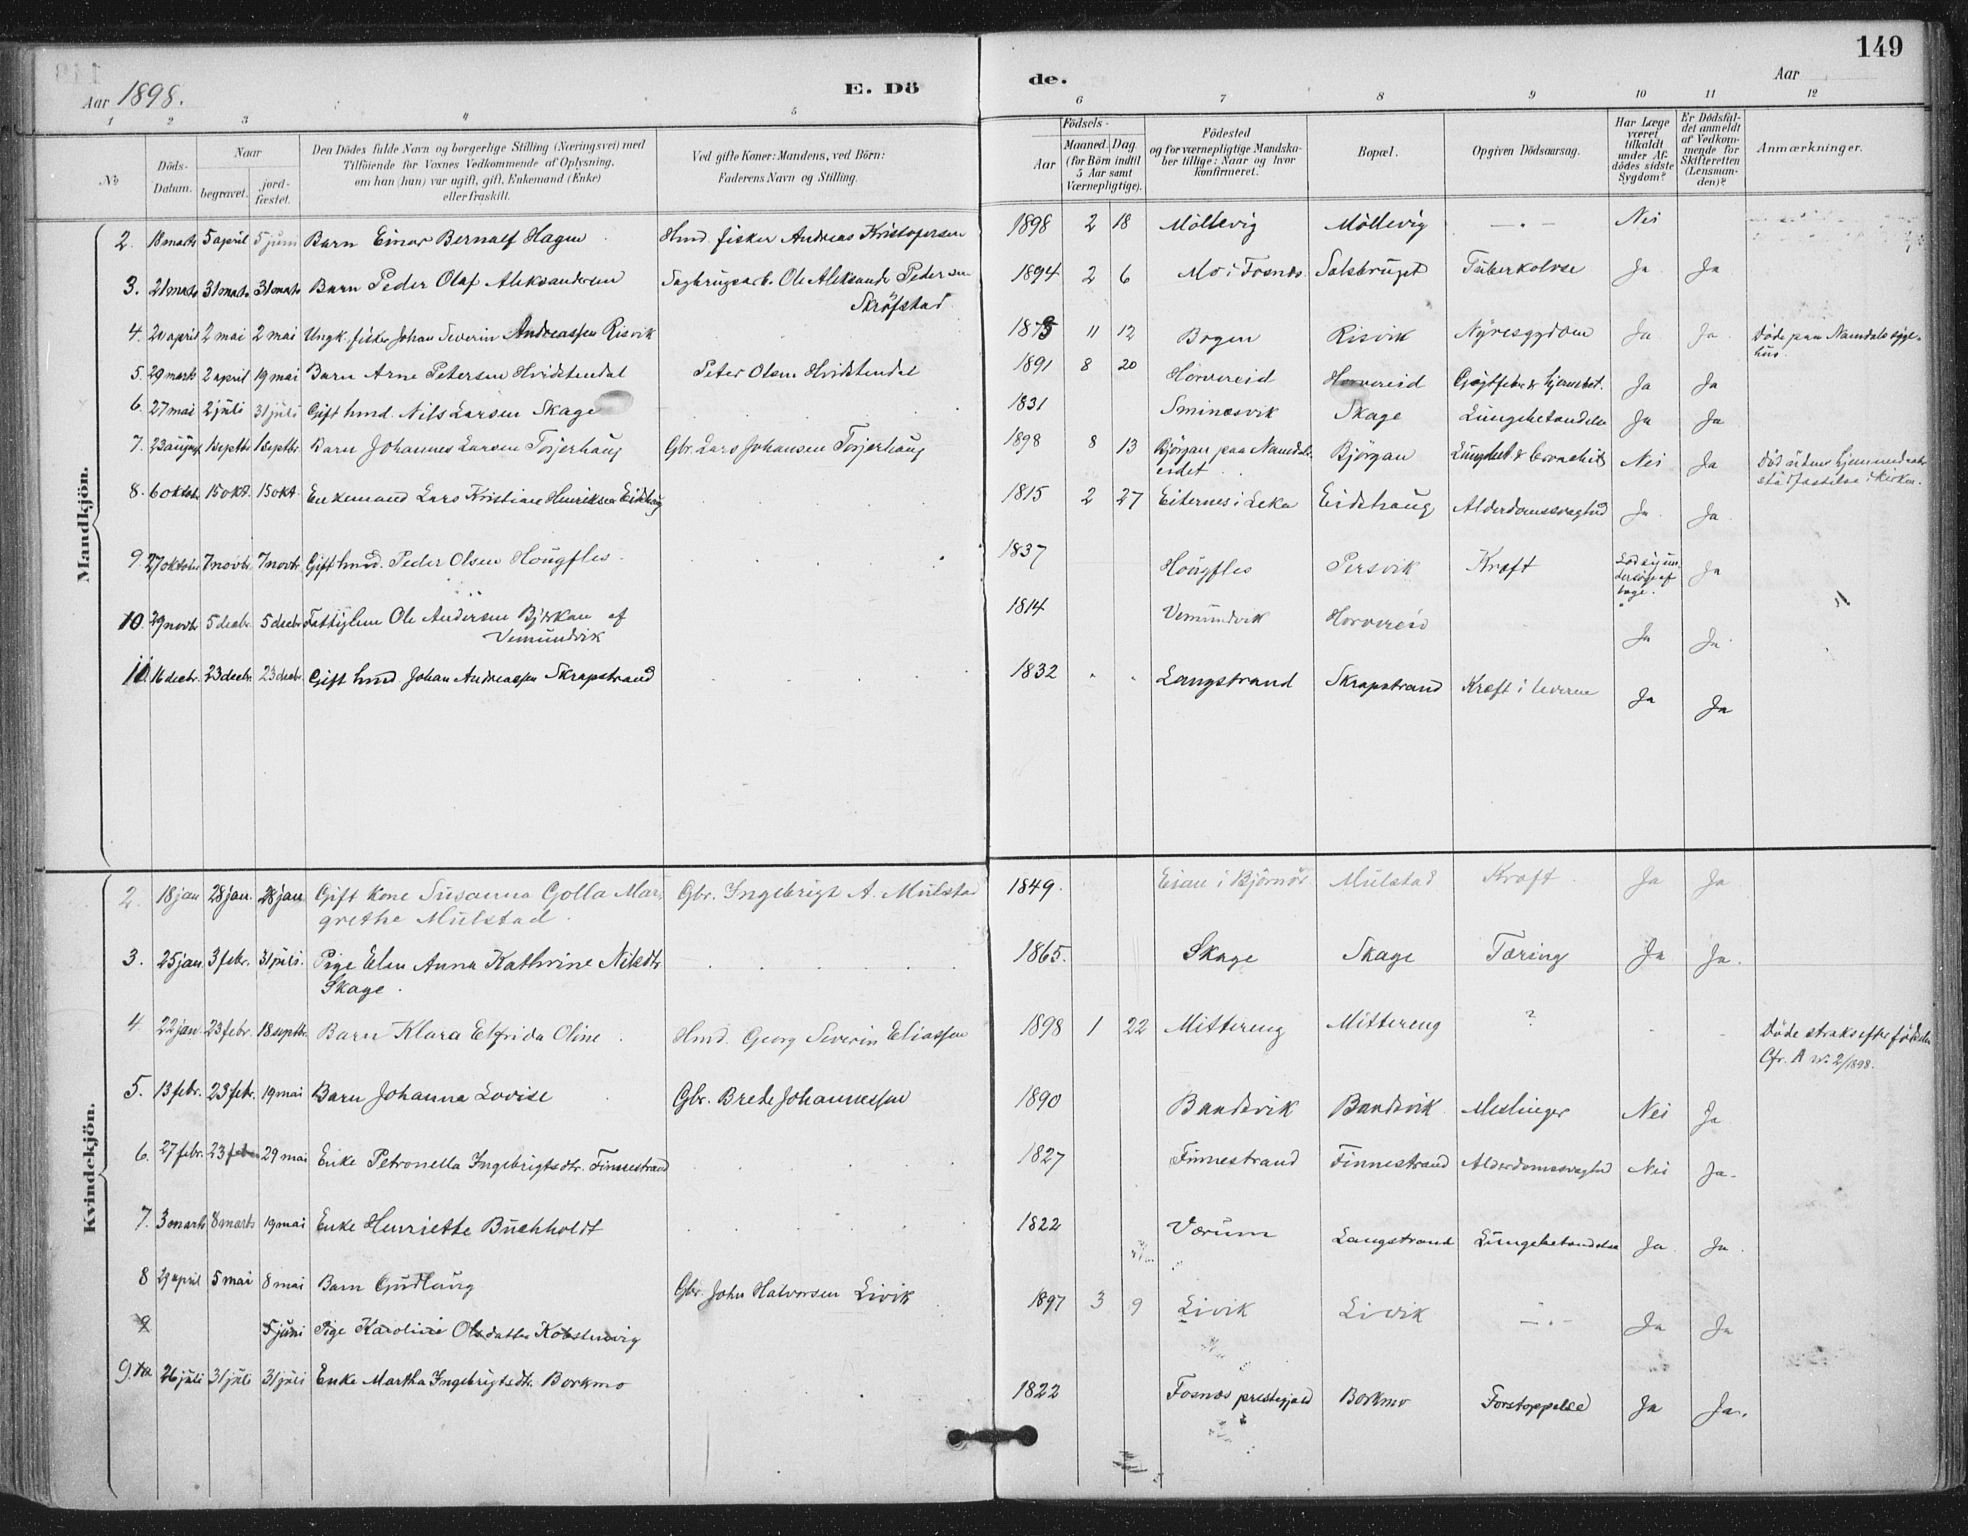 149
Aar 1898.
E. Dö
de.
Aar
1 2 3 4 5 6 7 8 9 10 11 12
No
Döds-
Datum.
Naar
begravet.
jord-
fæstet.
Den Dödes fulde Navn og borgerlige Stilling (Næringsvei) med
Tilföiende for Voxnes Vedkommende af Oplysning,
om han (hun) var ugift, gift, Enkemand (Enke)
eller fraskilt.
Ved gifte Koner: Mandens, ved Börn:
Faderens Navn og Stilling.
Födsels-
Aar
Maaned. Dag.
(for Börn indtil
5 Aar samt
Værnepligtige).
Födested
og for værnepligtige Mandska-
ber tillige: Naar og hvor
konfirmeret.
Bopæl.
Opgiven Dödsaarsag.
Har Læge
været
tilkaldt
under Af-
dödes sidste
Sygdom?
Er Dödsfal-
det anmeldt
af Vedkom-
mende for
Skifteretten
(Lensman-
den)?
Anmærkninger.
Mandkjön.
2. 18 marts 5 april 5 juni Barn Einar Bernalf Hagen Hmd. fisker Andreas Kristofersen 1898 2 18 Möllevig Möllevig — . — Nei
3. 21 marts 31 marts 31 marts Barn Peder Olaf Aleksandersen Sagbrugsarb. Ole Aleksander Pedersen 1894 2 6 Mo i Fosnes Salsbruget Tuberkolose Ja Ja
Skröfstad
4. 20 april 2 mai 2 mai Ungk. fisker Johan Severin Andreassen Risvik 11 12 Bogen Risvik Nyresygdom Ja Ja Döde paa Namdals syge-
hus.
5. 29 marts 2 april 19 mai Barn Arne Petersen Hvidstendal Peter Olsen Hvidstendal 1891 8 20 Horvereid Horvereid Gigtfeber & hjernebet. Ja Ja
6. 27 mai 2 juli 31 juli Gift hmd. Nils Larsen Skage 1831 Sminæsvik Skage Lungebetændelse Ja Ja
7. 23 august 1 septbr 1 septbr. Barn Johannes Larsen Torjerhaug Gbr. Lars Johansen Torjerhaug 1898 8 13 Björgan paa Namdals-
eidet Björgan Lungebet & bronchit Nei Ja Död uden hjemmedaab
stadfæstelse i kirken.
8. 6 oktbr. 15 okt. 15 okt. Enkemand Lars Kristian Henriksen Eidshaug 1815 2 27 Eiternes i Leka Eidshaug Alderdomssvaghed Ja Ja
9. 27 oktober 7 novbr. 7 novbr. Gift hmd. Peder Olsen Hougfles 1837 Hougfles Persvik Kræft Lod sig un-
dersöge af
læge. Ja
10. 29 novbr. 5 decbr 5 decbr Fattiglem Ole Andersen Björkan af 1814 Vemundvik Horvereid Ja Ja
Vemundvik
11. 16 decbr. 23 decbr. 23 decbr. Gift hmd Johan Andreassen Skrapstrand 1832 Langstrand Skrapstrand Kræft i leveren Ja Ja
Kvindekjön.
2. 18 jan 28 jan. 28 jan Gift kone Susanna Golla Mar- Gbr. Ingebrigt A. Mulstad 1849. Eian i Björnör Mulstad Kræft Ja Ja
grethe Mulstad.
3. 25 jan 3 febr. 31 juli. Pige Elen Anna Kathrine Nilsdtr. 1865. Skage Skage Tæring Ja Ja.
Skage.
4. 22 jan 23 febr. 18 septbr. Barn Klara Elfrida Oline Hmd. Georg Severin Eliassen 1898 1 22 Mittereng Mittereng ? Döde straks efter födselen
Cfr. A No 2/1898.
5. 13 febr. 23 febr. 19 mai Barn Johanna Lovise Gbr. Brede Johannessen 1890 Bandsvik Bandsvik Meslinger Nei Ja
6. 27 febr. 23 29 mai Enke Petronella Ingebrigtsdtr. Finnestrand 1827 Finnestrand Finnestrand Alderdomssvaghed Nei Ja.
7. 3 marts 8 marts 19 mai Enke Henriette Buchholdt 1822 Værum Langstrand Lungebetændelse Ja Ja.
8 29 april 5 mai 8 mai Barn Gudlaug Gbr. John Halvorsen Livik 1897 3 9 Livik Livik — . — Ja Ja
9 5 juni Pige Karoline Olsdatter
9. 10. 26 juli 31 juli 31 juli Enke Martha Ingebrigtsdtr. Borkmo 1822 Fosnæs prestegjeld Borkmo Forstoppelse Ja Ja.